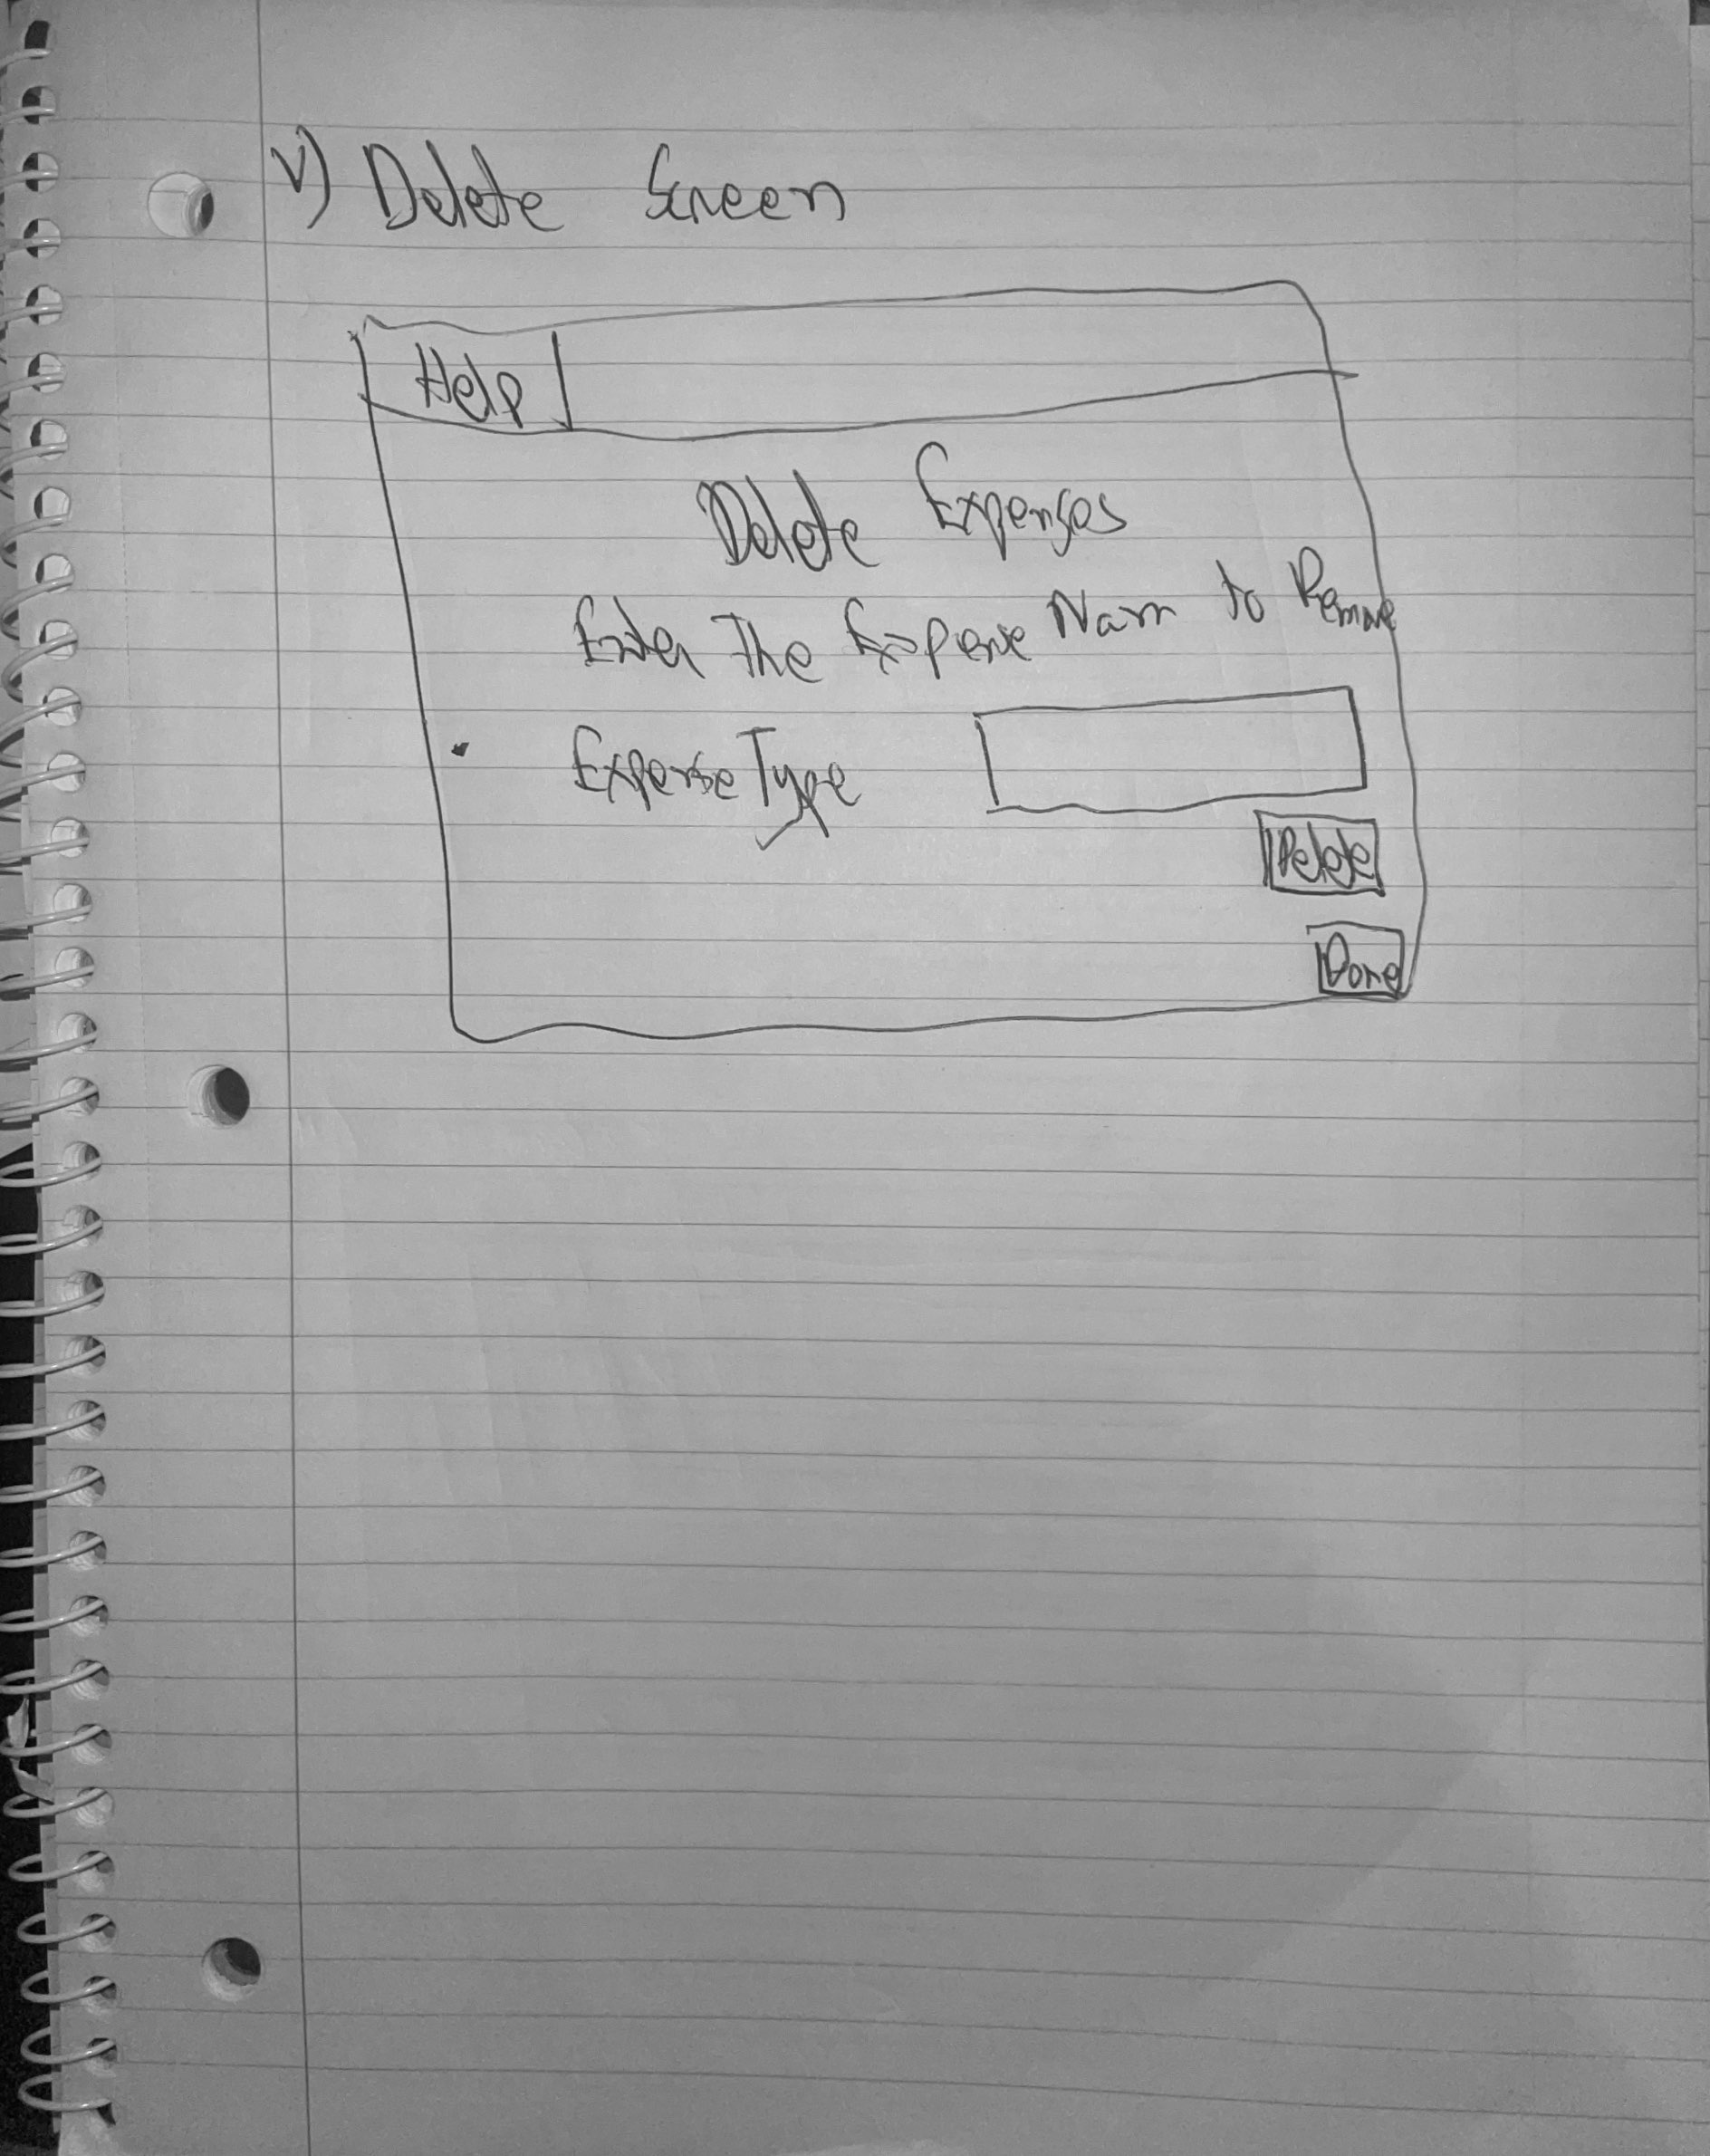 V) Delete Screen
Help
Delete Expenses
Enter The Expense Nam to Remove
Expense Type
Delete
Done